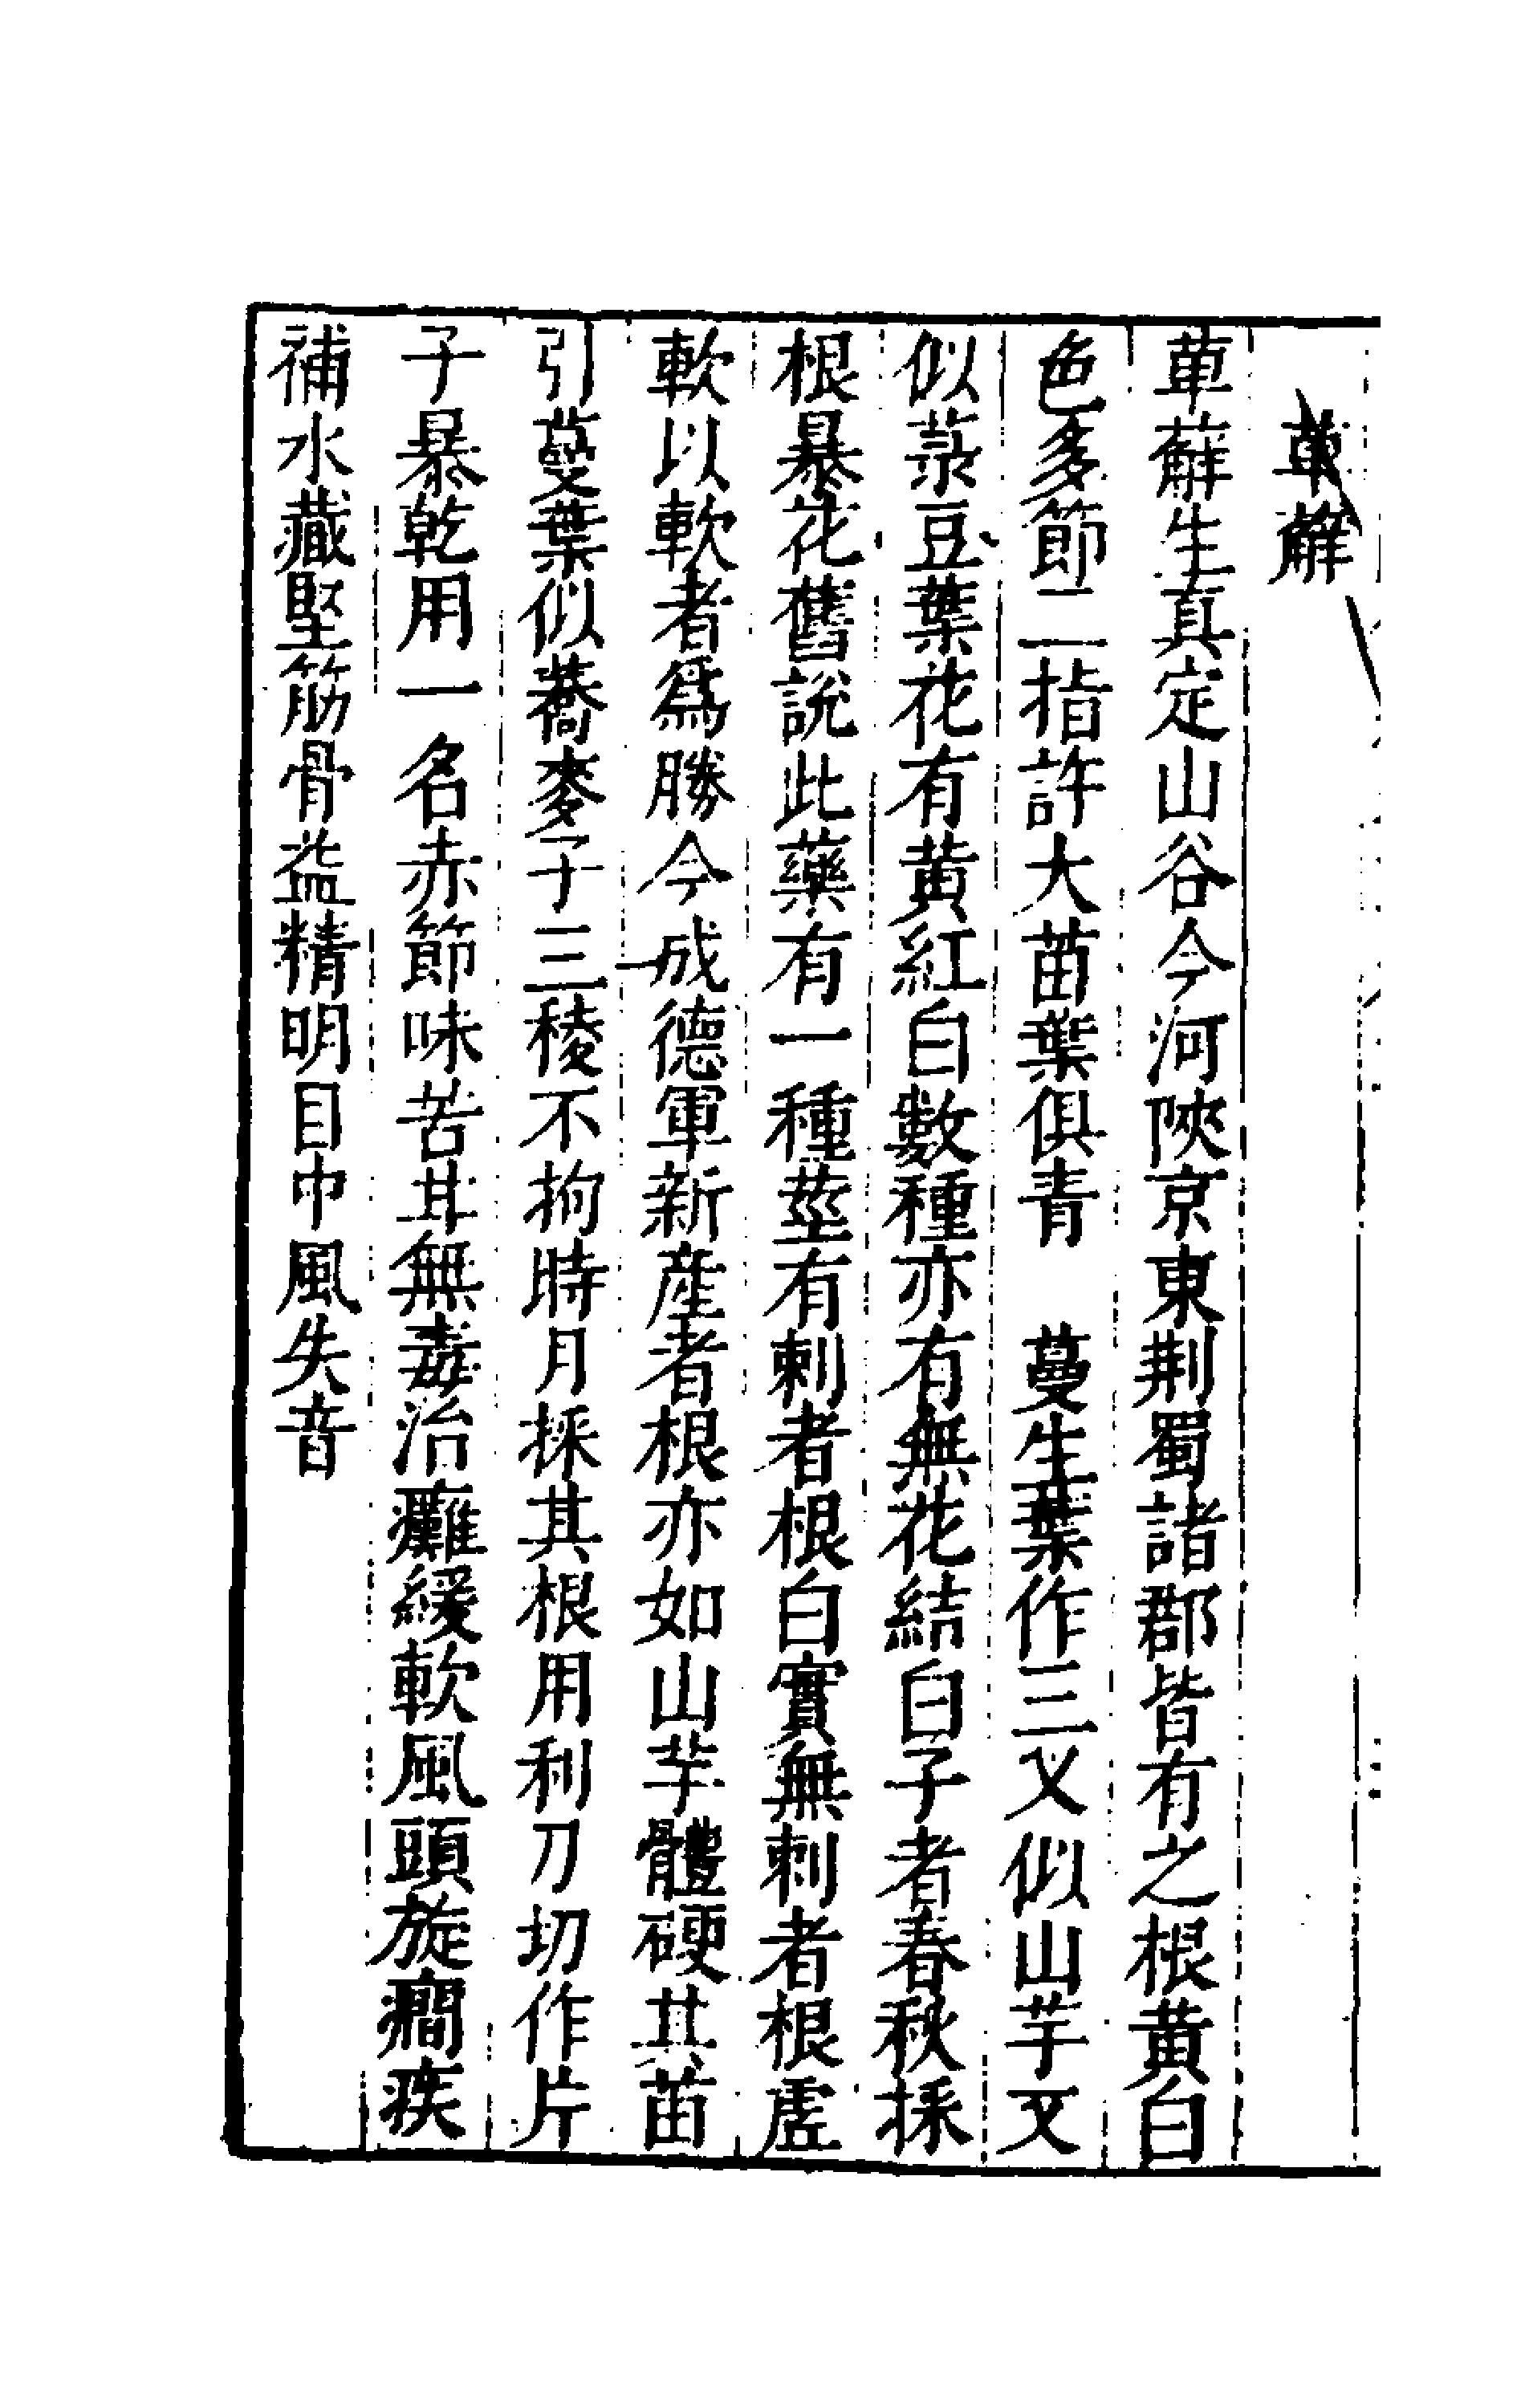 萆薢
萆薢生真定山谷今河陝京東荆蜀諸郡皆有之根黄白
色多節二指許大苗葉俱青　蔓生葉作三叉似山芋又
似菉豆葉花有黄紅白數種亦有無花結白子者春秋採
根暴花舊説此藥有一種莖有刺者根白實無刺者根虛
軟以軟者爲勝今成德軍新産者根亦如山芋體硬其苗
引蔓葉似蕎麥子三稜不拘時月採其根用利刀切作片
子暴乾用一名赤節味苦甘無毒治癱緩軟風頭旋癇疾
補水藏堅筋骨益精明目中風失音